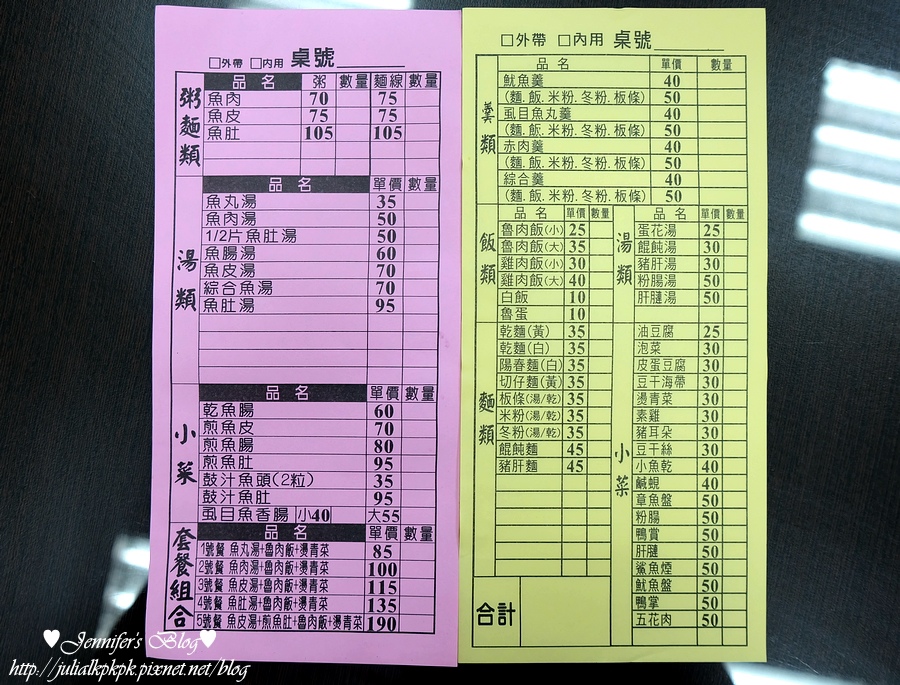 □外帶 □內用 桌號
粥麵類
品名 粥 數量 麵線 數量
魚肉 70 75
魚皮 75 75
魚肚 105 105
湯類
品名 單價 數量
魚丸湯 35
魚肉湯 50
1/2片魚肚湯 50
魚腸湯 60
魚皮湯 70
綜合魚湯 70
魚肚湯 95
小菜
品名 單價 數量
乾魚腸 60
煎魚皮 70
煎魚腸 80
煎魚肚 95
鼓汁魚頭(2粒) 35
鼓汁魚肚 95
虱目魚香腸 小40 大55
套餐組合
品名 單價 數量
1號餐 魚丸湯+魯肉飯+燙青菜 85
2號餐 魚肉湯+魯肉飯+燙青菜 100
3號餐 魚皮湯+魯肉飯+燙青菜 115
4號餐 魚肚湯+魯肉飯+燙青菜 135
5號餐 魚皮湯+煎魚肚+魯肉飯+燙青菜 190
□外帶 □內用 桌號
羹類
品名 單價 數量
魷魚羹 40
(麵.飯.米粉.冬粉.板條) 50
虱目魚丸羹 40
(麵.飯.米粉.冬粉.板條) 50
赤肉羹 40
(麵.飯.米粉.冬粉.板條) 50
綜合羹 40
(麵.飯.米粉.冬粉.板條) 50
飯類
品名 單價 數量
魯肉飯(小) 25
魯肉飯(大) 35
雞肉飯(小) 30
雞肉飯(大) 40
白飯 10
魯蛋 10
麵類
乾麵(黃) 35
乾麵(白) 35
陽春麵(白) 35
切仔麵(黃) 35
板條(湯/乾) 35
米粉(湯/乾) 35
冬粉(湯/乾) 35
餛飩麵 45
豬肝麵 45
合計
湯類
品名 單價 數量
蛋花湯 25
餛飩湯 30
豬肝湯 50
粉腸湯 50
肝腱湯 50
小菜
油豆腐 25
泡菜 30
皮蛋豆腐 30
豆干海帶 30
燙青菜 30
素雞 30
豬耳朵 30
豆干絲 30
小魚乾 40
鹹蜆 40
章魚盤 50
粉腸 50
鴨賞 50
肝腱 50
鯊魚煙 50
魷魚盤 50
鴨掌 50
五花肉 50
Jennifer's Blog
http://julialkpkpk.pixnet.net/blog